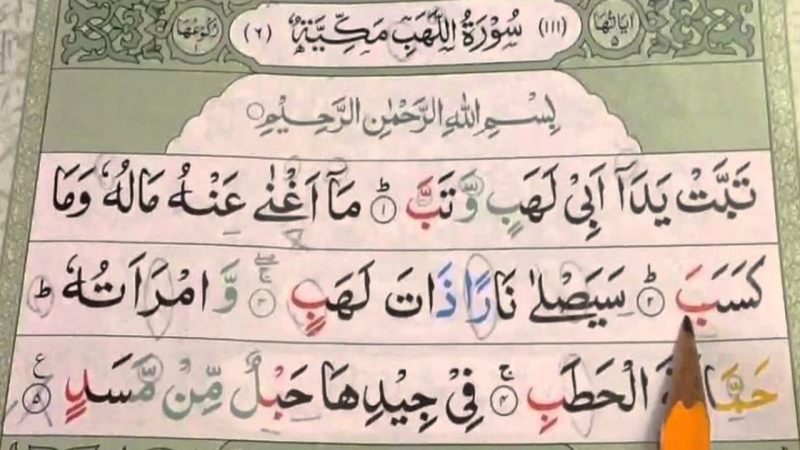 اٰیَاتُهَا ٥ (١١١) سُوْرَةُ اللَّهَبِ مَكِّيَّةٌ (٦) رُكُوْعُهَا ١
بِسْمِ اللهِ الرَّحْمٰنِ الرَّحِيْمِ
تَبَّتْ يَدَآ اَبِيْ لَهَبٍ وَّ تَبَّ ؕ ۝١ مَاۤ اَغْنٰى عَنْهُ مَالُهٗ وَمَا
كَسَبَ ؕ ۝٢ سَيَصْلٰى نَارًا ذَاتَ لَهَبٍ ۝٣ وَّ امْرَاَتُهٗ ؕ
الْحَطَبِ ۚ ۝٤ فِيْ جِيْدِهَا حَبْلٌ مِّنْ مَّسَدٍ ۝٥ ع